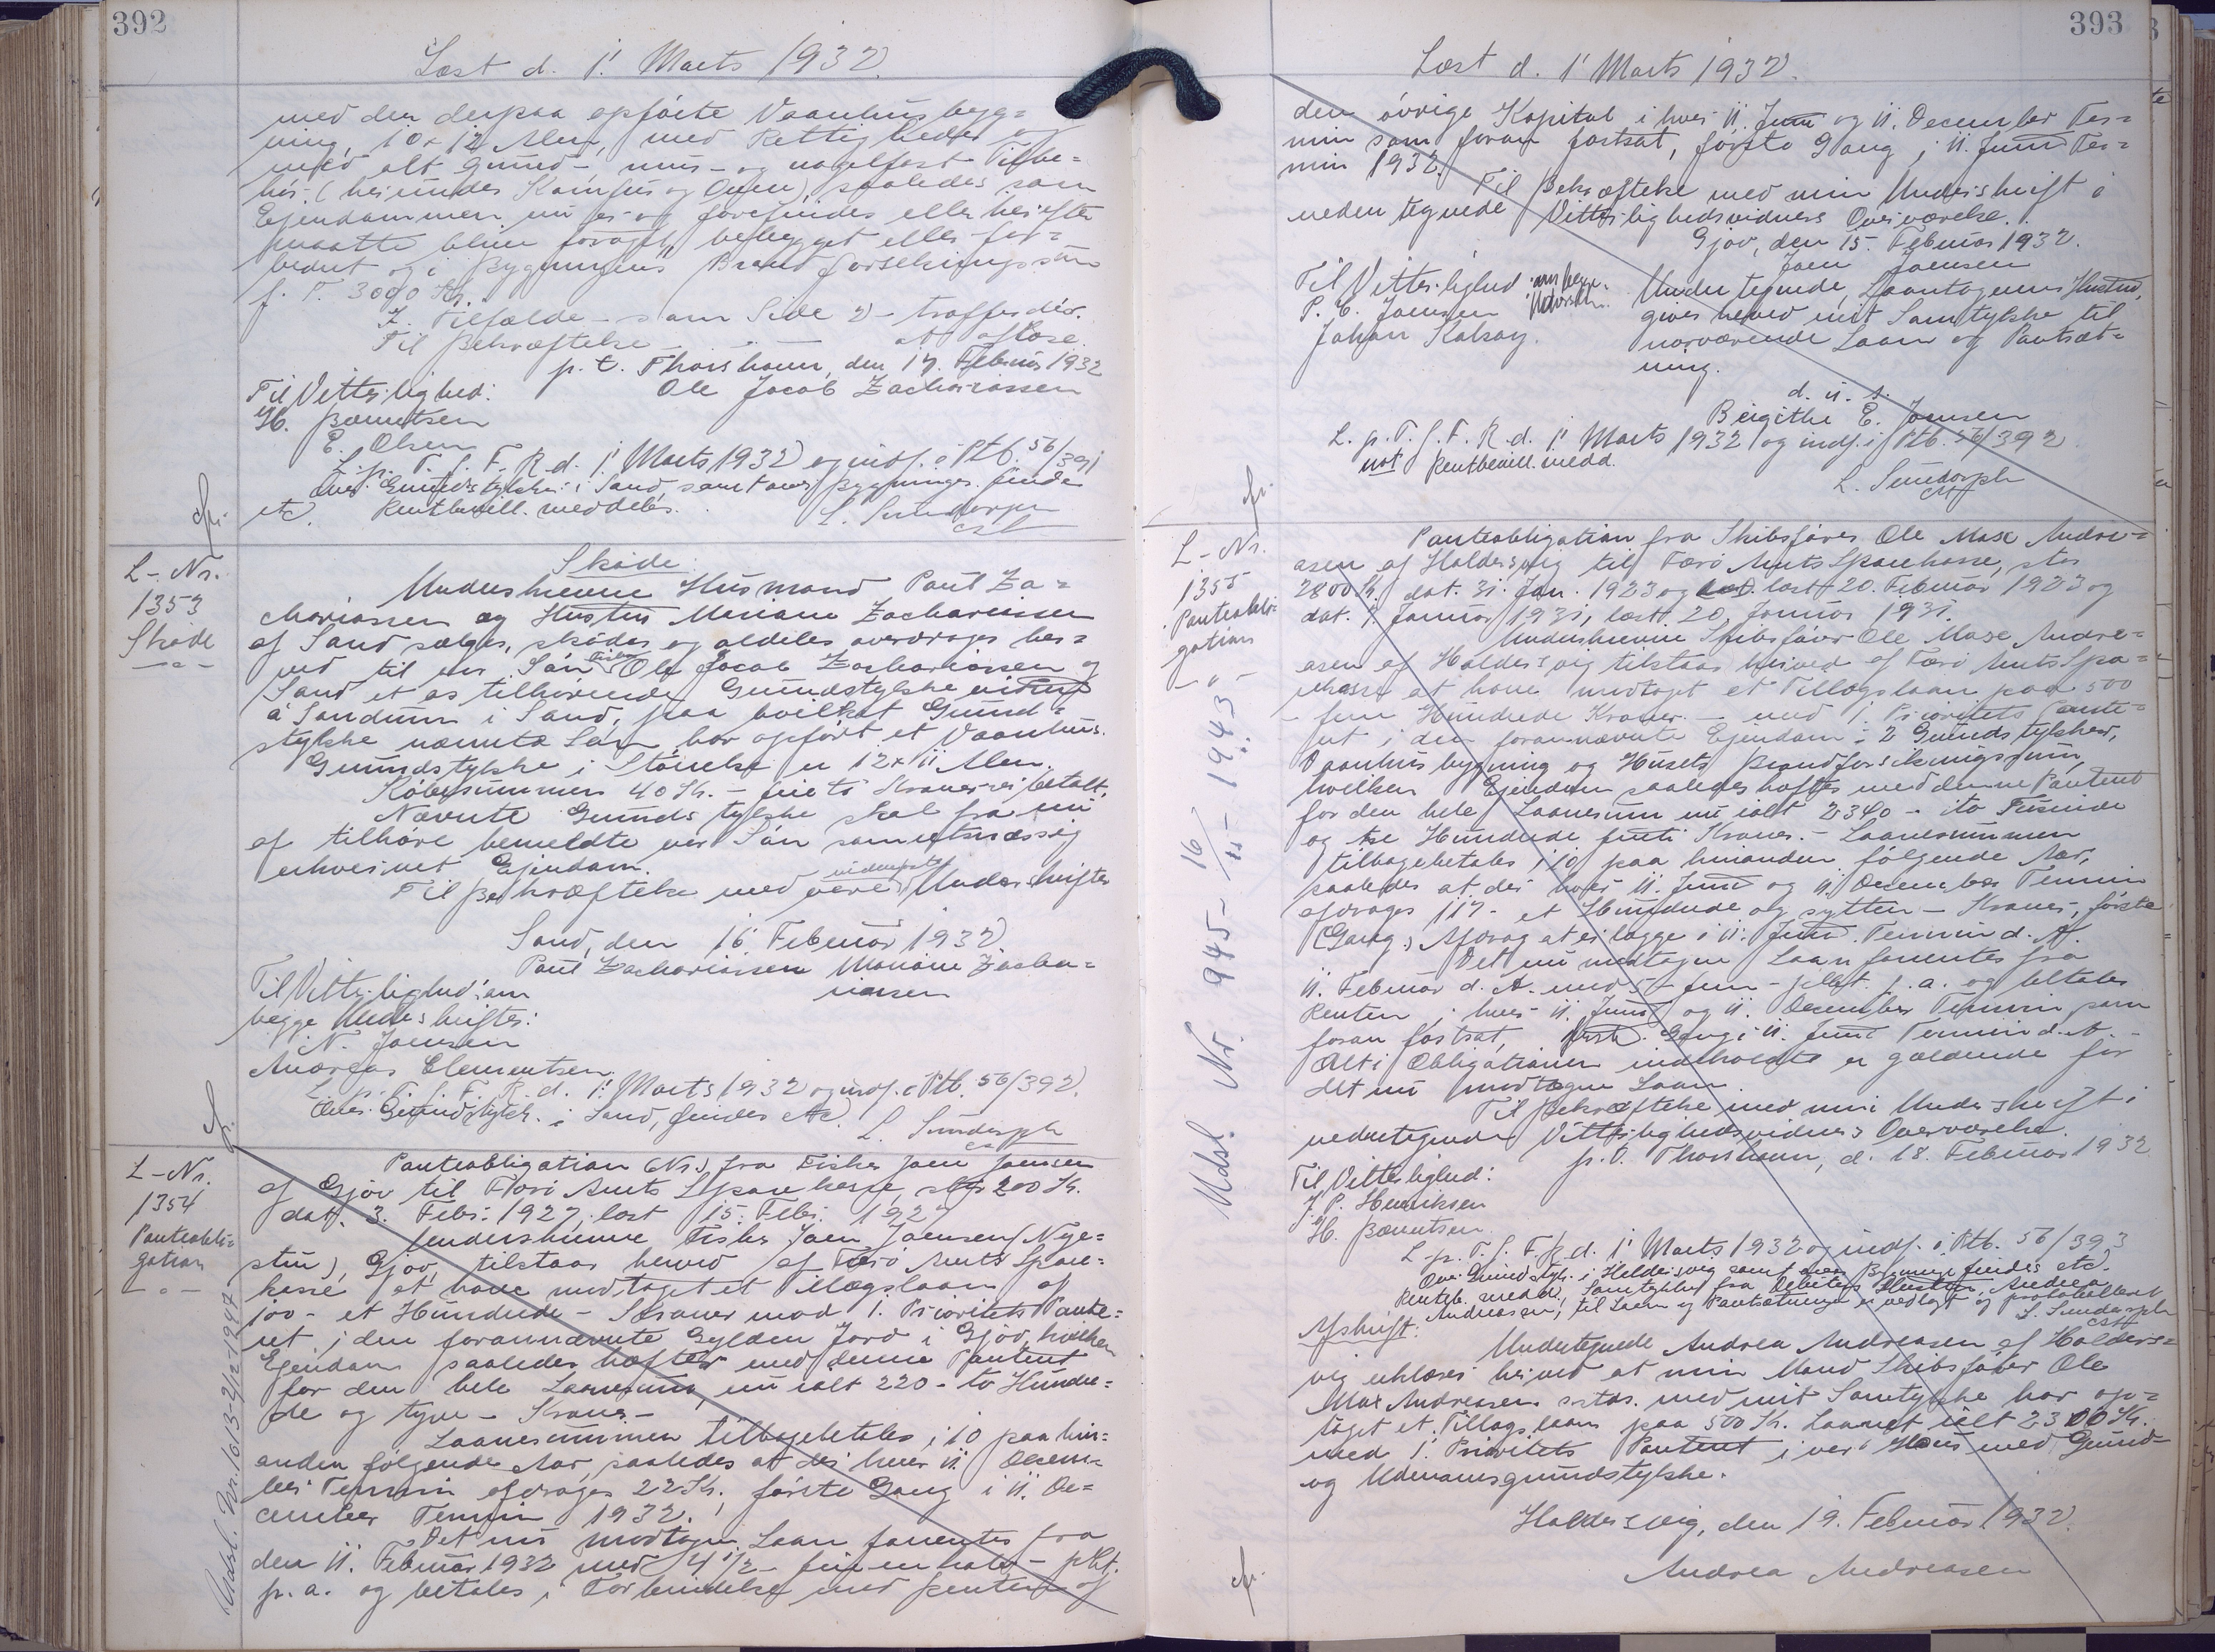 392
Læst d. 1' Marts 1932.
med den derpaa opførte Vaanhusbyg=
ning, 10 x 12 Alen, med Rettigheder og
med alt grund- mur- og nagelfast Tilbe=
hør (herunder Komfur og Ovne) saaledes som
Ejendommen nu er og forefindes eller herefter
maatte blive forøget, bebygget eller for=
bedret og i Bygningens Brandforsikringssum
p. T. 3000 Kr.
I Tilfælde - som Side 2 - træffer dér.
Til Bekræftelse - " - at afløse.
p. t. Thorshavn, den 17. Februar 1932
Til Vitterlighed: Ole Jacob Zachariassen
H. Berentsen
E. Olsen
L. p. T. f. F. R. d. 1' Marts 1932 og indf. i Ptb. 56/391
Over Grundstykke i Sand, samt over Bygninger findes
etc. Rentbevill. meddelt.
L. Sundorph
cst
L-Nr.
1353
Skøde
- " -
Skøde
Underskrevne Husmand Paul Za=
chariassen og Hustru Mariane Zachariassen
af Sand sælger, skøder og aldeles overdrager her=
ved til vor Søn Fisker Ole Jacob Zachariassen af
Sand et os tilhørende Grundstykke
á Sandum i Sand, paa hvilket Grund=
stykke nævnte Søn har opført et Vaanhus.
Grundstykke i Størrelse er 12 x 11 Alen.
Købesummen 40 Kr. - firti Kroner er betalt.
Nævnte Grundstykke skal fra nu
af tilhøre bemeldte vor Søn som retmæssig
erhvervet Ejendom.
Til Bekræftelse med vore Underskrifter
Sand, den 16 Februar 1932.
Paul Zachariassen Mariane Zacha=
riassen
Til Vitterlighed om
begge Underskrifter:
N. Joensen
Andreas Clementsen
L. p. T. f. F. R. d. 1' Marts 1932 og indf. i Ptb. 56/392.
Over Grundstykk. i Sand, findes etc.
L. Sundorph
cst
L-Nr.
1354
Panteobli=
gation
- " -
Udsl. Nr. 1613-2/12-1947
Panteobligation (Nr.) fra Fisker Joen Joensen
af Gjov til Færø Amts Sparekasse, stor 200 Kr.
dat. 3. Febr. 1927, læst 15. Febr. 1927
Underskrevne Fisker Joen Joensen (Nyge=
stu), Gjov, tilstaar herved af Færø Amts Spare=
kasse at have modtaget et Tillægslaan af
100 - et Hundrede - Kroner mod 1. Prioritets Pante=
ret i den forannævnte Gylden Jord i Gjov, hvilken
Ejendom saaledes hæfter med denne Panteret
for den hele Laanesum, nu ialt 220 - to Hundre=
de og tyve - Kroner -
Laanesummen tilbagebetales i 10 paa hin=
anden følgende Aar, saaledes at der hver 11. Decem=
ber Termin afdrages 22 Kr., første Gang i 11. De=
cember Termin 1932.
Det nu modtagne Laan forrentes fra
den 11. Februar 1932 med 4 1/2 - fire en halv - pCt.
p. a. og betales i Forbindelse med Renten af
393
Læst d. 1' Marts 1932.
den øvrige Kapital i hver 11. Juni og 11. December Ter=
min som foran fastsat, første Gang i 11. Juni Ter=
min 1932.
Til Bekræftelse med min Underskrift i
nedentegnede Vitterlighedsvidners Overværelse.
Gjov, den 15. Februar 1932.
Joen Joensen
Til Vitterlighed om begge
Underskr.
P. E. Joensen
Johan Kalsoy.
Undertegnede, Laantagerens Hustru,
giver herved mit Samtykke til
nærværende Laan og Pantsæt=
ning.
d. u. s.
Birgithe E. Joensen
L. p. T. f. F. R. d. 1' Marts 1932 og indf. i Ptb. 56/392
not Rentbevill. medd.
L. Sundorph
cst
L-Nr.
1355
Panteobli=
gation
- " -
Udsl. Nr. 945 - 16/11 - 1943
Panteobligation fra Skibsfører Ole Max Andre=
asen af Haldersvig til Færø Amts Sparekasse, stor
2800 Kr. dat. 31. Jan. 1923 og læst 20. Februar 1923 og
dat. 7. Januar 1931, læst 20. Januar 1931.
Underskrevne Skibsfører Ole Max Andre=
asen af Haldersvig tilstaar herved af Færø Amts Spa=
rekasse at have modtaget et Tillægslaan paa 500
- fem Hundrede Kroner - mod 1. Prioritets Pante=
ret i den forannævnte Ejendom: 2 Grundstykker,
Vaanhusbygning og Husets Brandforsikringssum,
hvilken Ejendom saaledes hæfter med denne Panteret
for den hele Laanesum nu ialt 2340 - to Tusinde
og tre Hundrede firti Kroner. - Laanesummen
tilbagebetales i 10 paa hinanden følgende Aar,
saaledes at der hver 11. Juni og 11. December Termin
afdrages 117 - et Hundrede og sytten - Kroner, første
Gang Afdrag at erlægge i 11. Juni Termin d. A.
Det nu modtagne Laan forrentes fra
11. Februar d. A. med 5 - fem - pCt. p. a. og betales
Renten i hver 11. Juni og 11. December Termin som
foran fastsat, første Gang i 11. Juni Termin d. A. -
Alt i Obligationen indeholdte er gældende for
det nu modtagne Laan.
Til Bekræftelse med min Underskrift i
nedentegnede Vitterlighedsvidners Overværelse.
p. t. Thorshavn, d. 18. Februar 1932
Til Vitterlighed:
J. P. Henriksen
H. Berentsen
L. p. T. f. F. R. d. 1' Marts 1932 og indf. i Ptb. 56/393
Over Grundstyk. i Haldersvig samt over Bygninger findes etc.
Rentb. medd. Samtykke fra Debitors Hustru, Andrea
Andreasen, til Laan og Pantsætningen er vedlagt og protokolleret
L. Sundorph
cst
Afskrift:
Undertegnede Andrea Andreasen af Halders=
vig erklærer herved at min Mand Skibsfører Ole
Max Andreasen sstds. med mit Samtykke har op=
taget et Tillægslaan paa 500 Kr. Laanet ialt 2300 Kr.
med 1. Prioritets Panteret i vort Hus med Grund-
og Udenomsgrundstykke.
Haldersvig, den 19. Februar 1932.
Andrea Andreasen